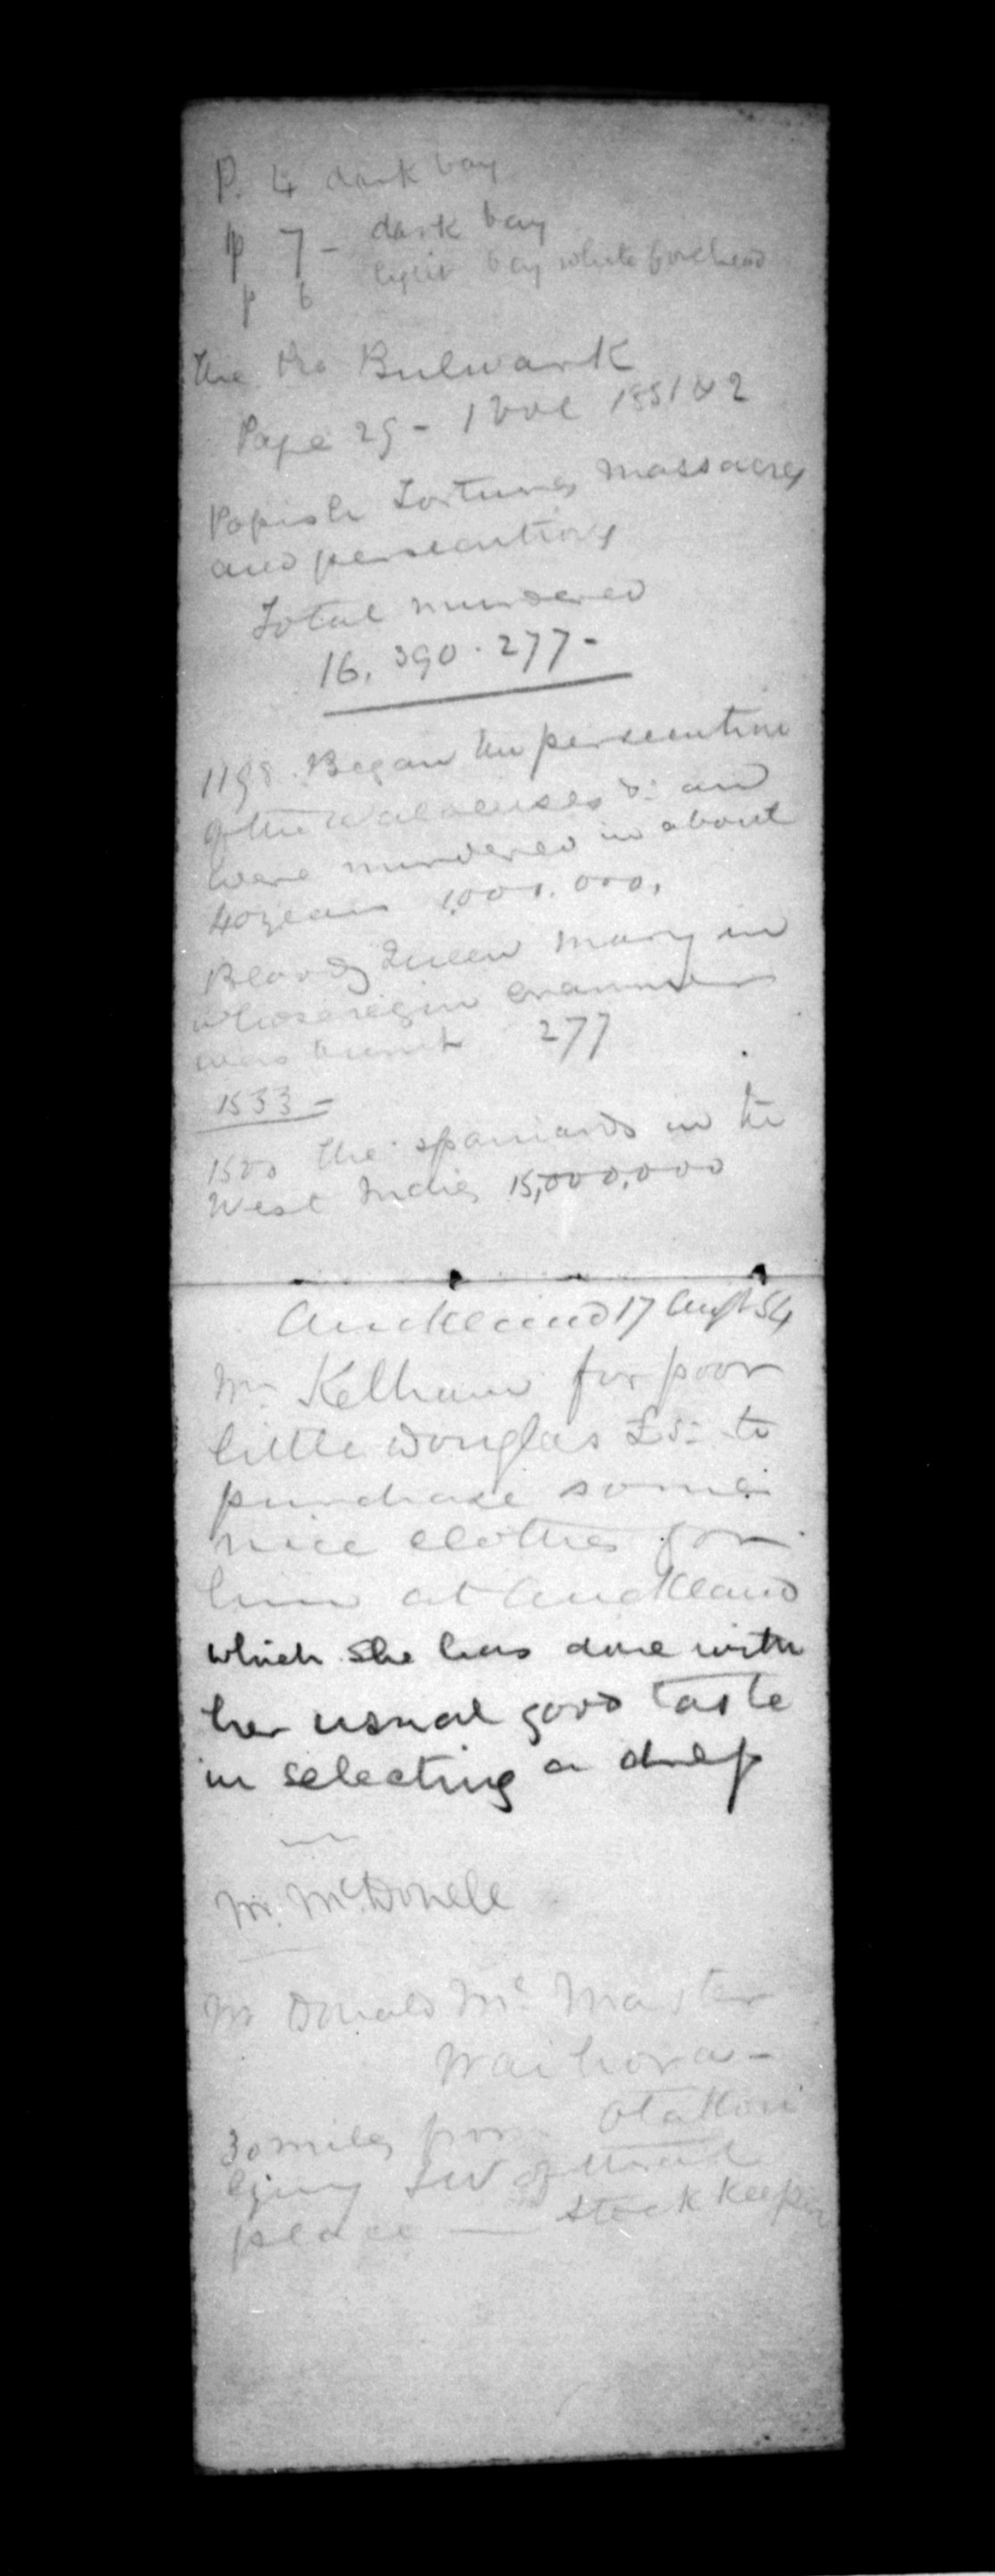 P. 4 dark bay
p 7 - dark bay
p 6 light bay white forehead
The Pro Bulwark
Page 29 - 1 Vol 1851 & 2
Popish Tortures, Massacres
and persecutions
Total murdered
16.390.277-
1198. Began the persecution
of the Waldenses &: and
were murdered in about
40 years 1,000.000.
Bloody Queen Mary in
whose reign Cranmer
was burnt 277
1533 -
1500 The Spaniards in the
West Indies 15,000,000
Auckland 17 Augt 54
Mrs Kelham for poor
little Douglas £5- to
purchase some
nice clothes for
him at Auckland
which she has done with
her usual good taste
in selecting a drep
Mr. McDonell
Mr Donald Mc Master
Waihora -
30 miles from
lying SW of that
place — Stock Keeper